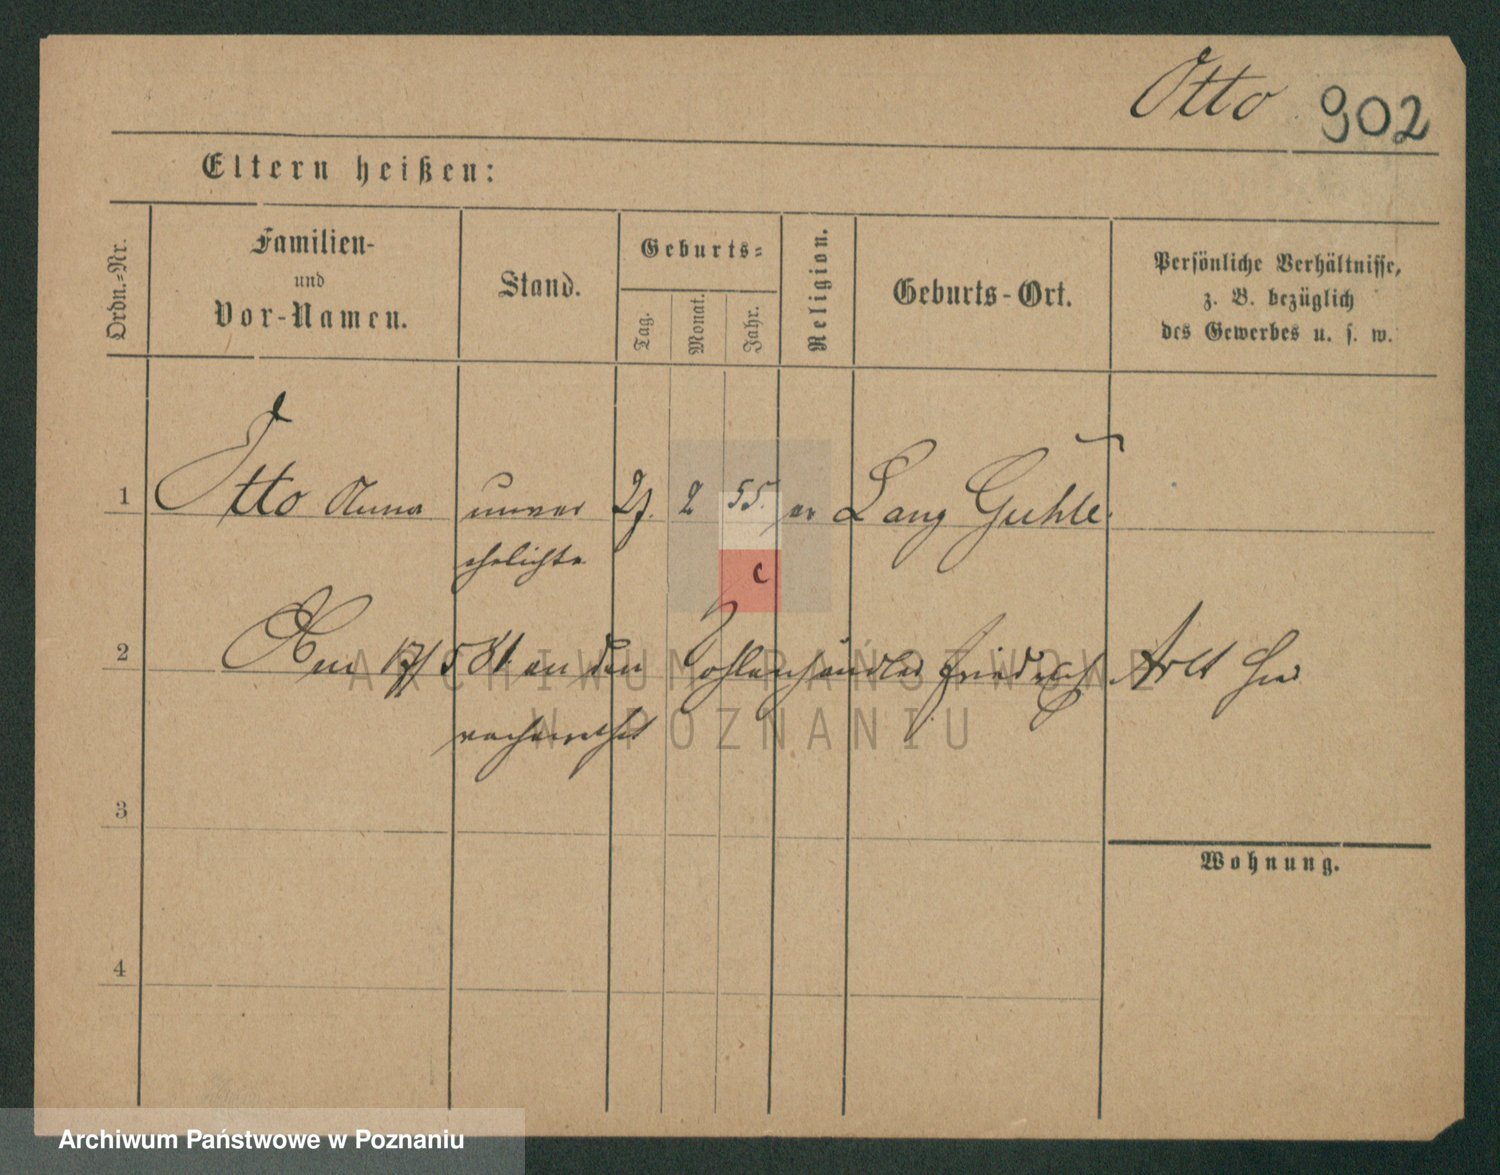 Otto 902
Eltern heißen:
Ordn.-Nr.
Familien-
und
Vor-Namen.
Stand.
Geburts-
Tag.
Monat.
Jahr.
Religion.
Geburts-Ort.
Persönliche Verhältnisse,
z. B. bezüglich
des Gewerbes u. s. w.
1 Otto Anna unver 27. 2 55. ev Lang Guhle
ehelichte
2 Am 17/5 81. an den Kohlenhändler Friedrich Arlt hier
verheirathet
ARCHIWUM PAŃSTWOWE
W POZNANIU
3
Wohnung.
4
Archiwum Państwowe w Poznaniu